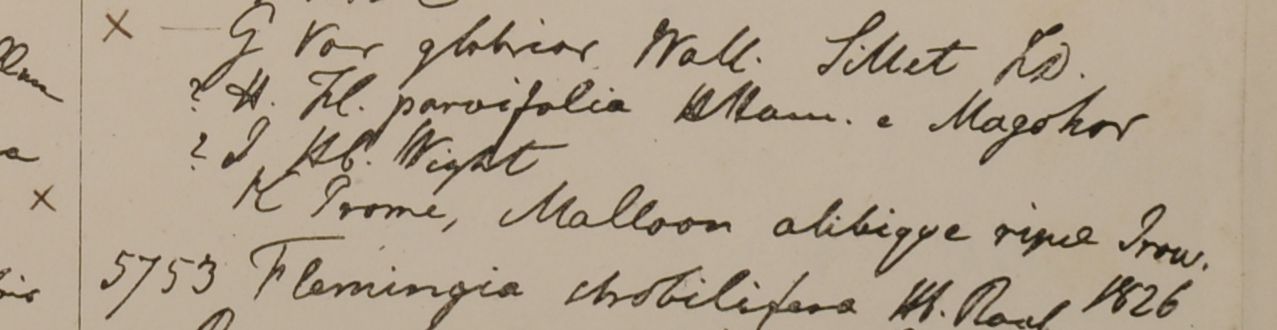 × — G Var glabrior Wall. Sillet FD.
? H. Fl. parvifolia HHam. e Magohor
? I, Hb. Wight
× K Prome, Malloon alibique ripæ Irow.
5753 Flemingia strobilifera Hb. Roxb 1826